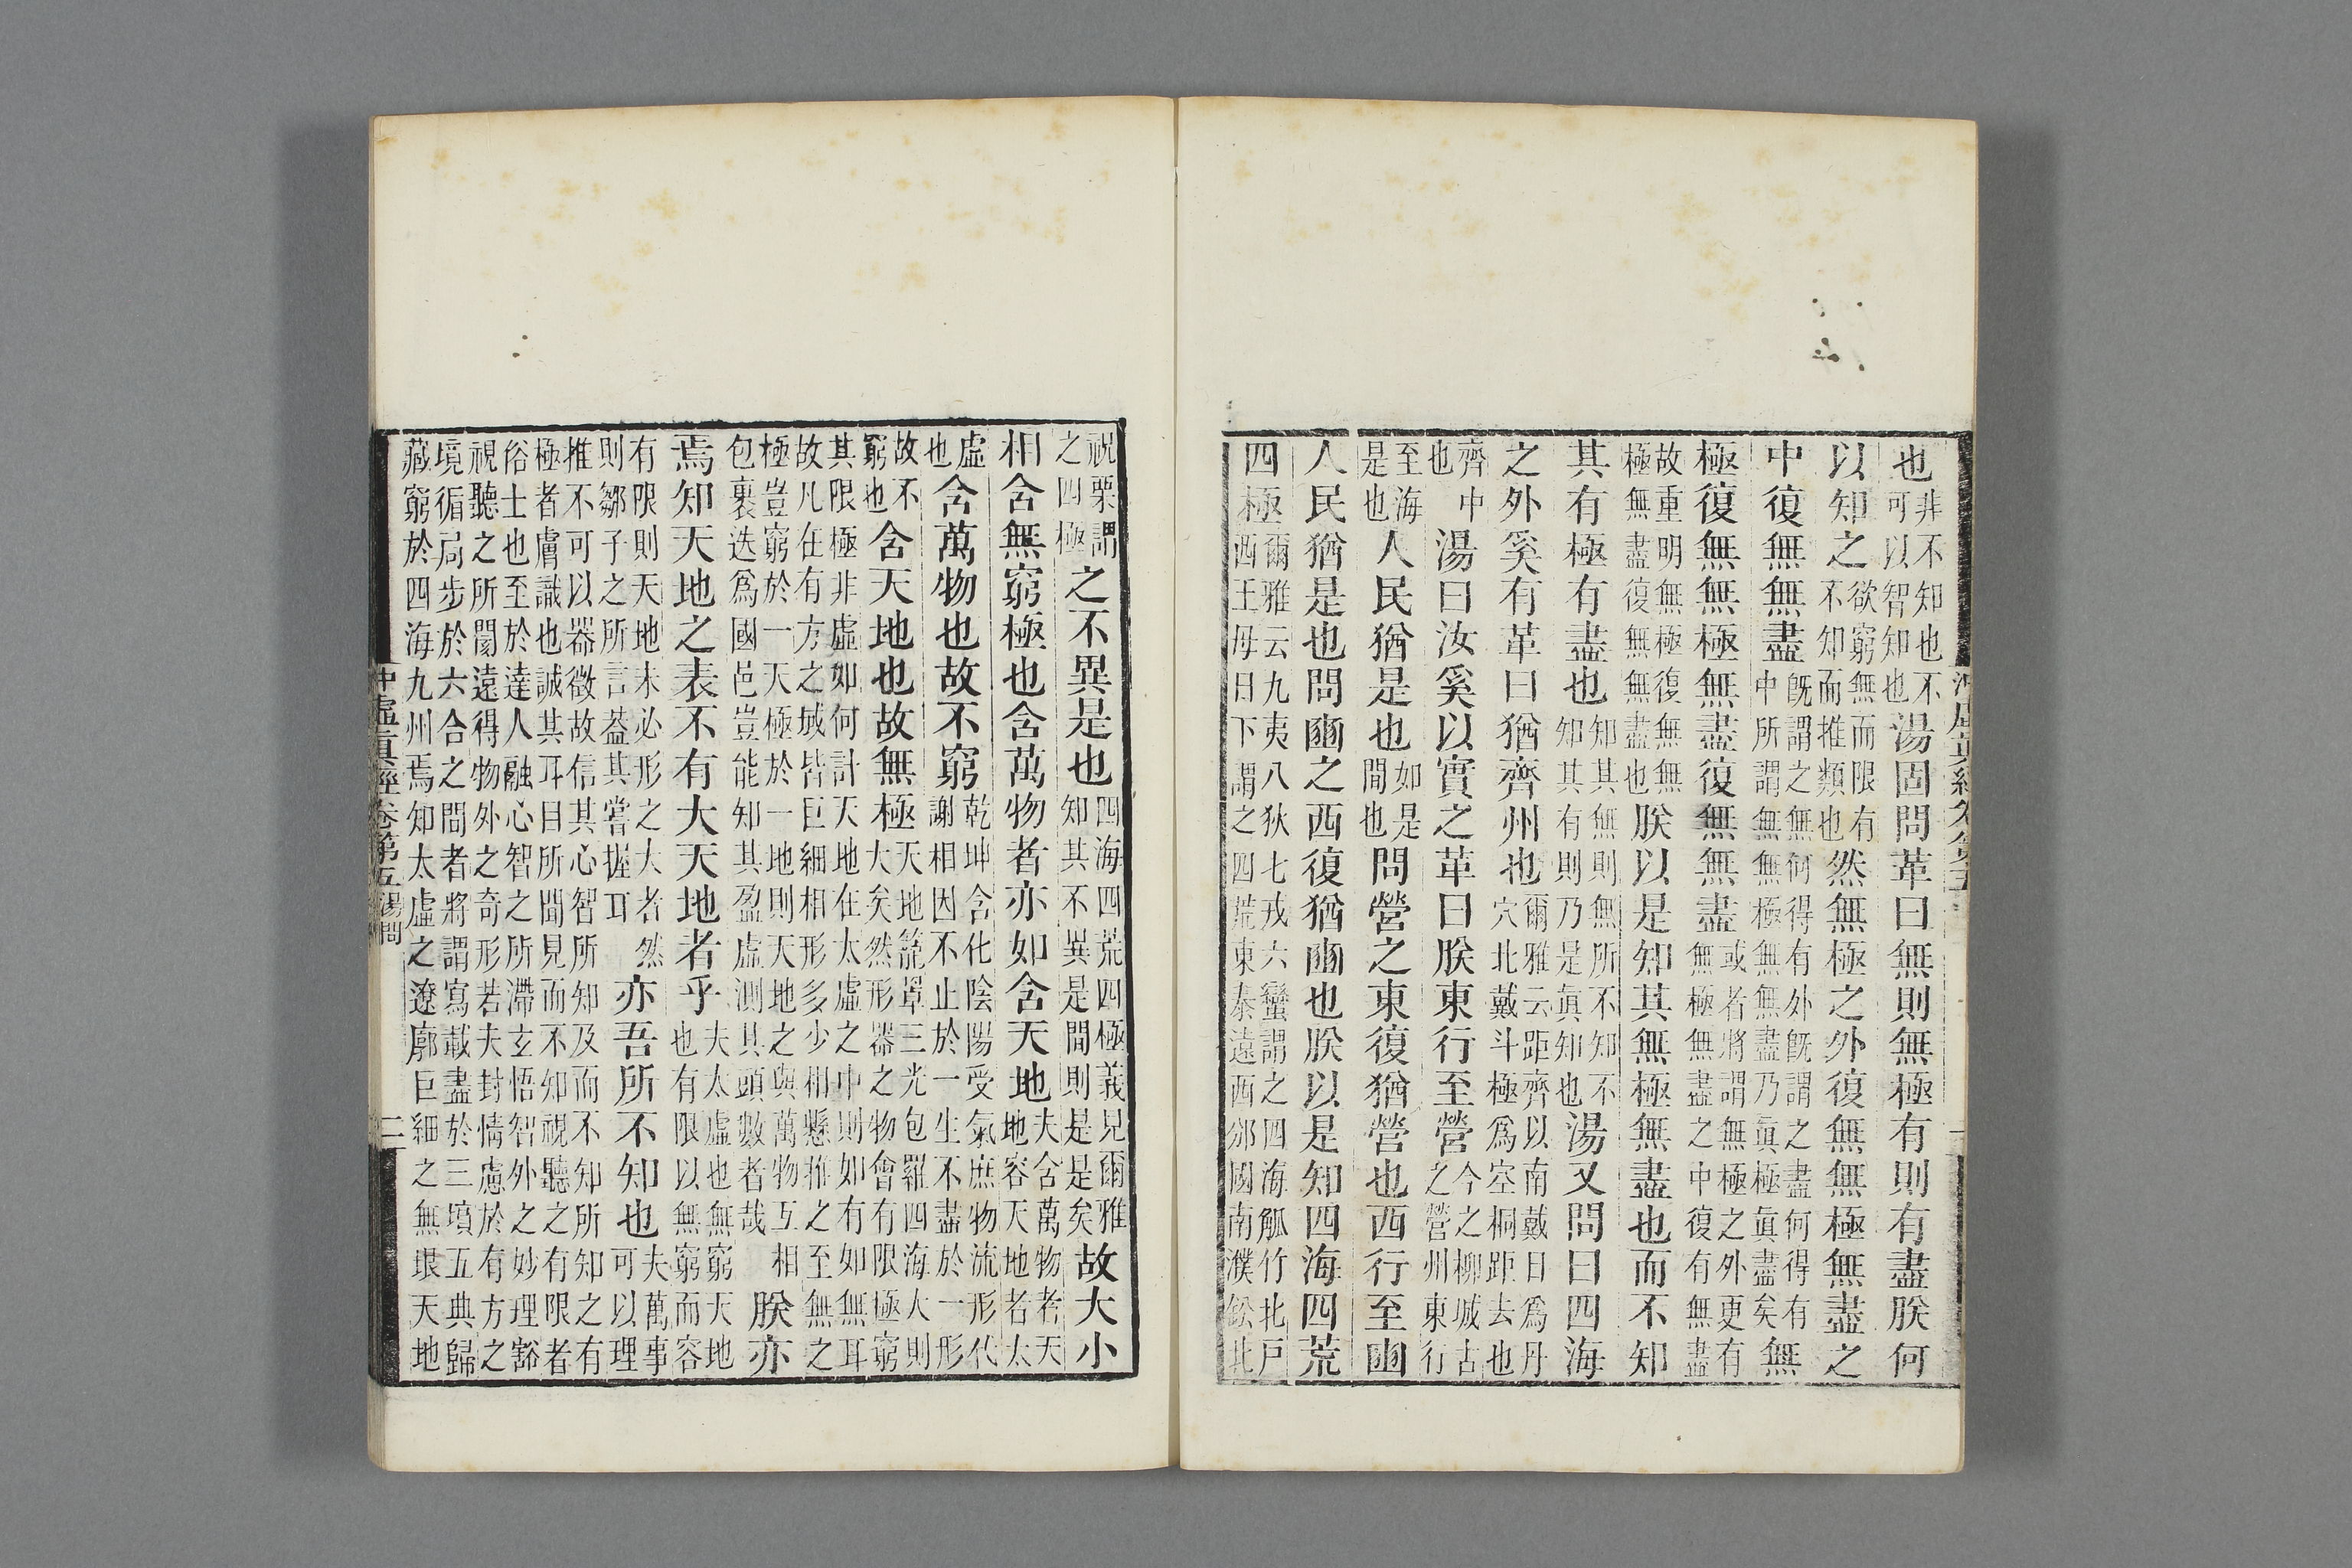 也非不知也不可以智知也湯固問革曰無則無極有則有盡朕何
以知之欲窮無而限有不知而推類也然無極之外復無無極無盡之
中復無無盡既謂之無何得有外既謂之盡何得有中所謂無無極無無盡乃眞極眞盡矣無
極復無無極無盡復無無盡或者將謂無極之外更有無極無盡之中復有無盡
故重明無極復無無極無盡復無無盡也朕以是知其無極無盡也而不知
其有極有盡也知其無則無所不知不知其有則乃是眞知也湯又問曰四海
之外奚有革曰猶齊州也爾雅云距齊以南戴日爲丹穴北戴斗極爲空桐距去也
齊中也湯曰汝奚以實之革曰朕東行至營今之柳城古之營州東行
至海是也人民猶是也如是間也問營之東復猶營也西行至豳
人民猶是也問豳之西復猶豳也朕以是知四海四荒
四極爾雅云九夷八狄七戎六蠻謂之四海觚竹北戶西王母日下謂之四荒東泰遠西邠國南濮鈆北
祝栗謂之四極之不異是也四海四荒四極義見爾雅知其不異是間則是是矣故大小
相含無窮極也含萬物者亦如含天地夫含萬物者天地容天地者太
虛也含萬物也故不窮乾坤含化陰陽受氣庶物流形代謝相因不止於一生不盡於一形
故不窮也含天地也故無極天地籠罩三光包羅四海大則大矣然形器之物會有限極窮
其限極非虛如何計天地在太虛之中則如有如無耳故凡在有方之域皆巨細相形多少相懸推之至無之
極豈窮於一天極於一地則天地之與萬物互相包裹迭爲國邑豈能知其盈虛測其頭數者哉朕亦
焉知天地之表不有大天地者乎夫太虛也無窮天地也有限以無窮而容
有限則天地未必形之大者然則鄒子之所言葢其嘗握耳亦吾所不知也夫萬事可以理
推不可以器徵故信其心智所知及而不知所知之有極者膚識也誠其耳目所聞見而不知視聽之有限者
俗士也至於達人融心智之所滯玄悟智外之妙理豁視聽之所閡遠得物外之奇形若夫封情慮於有方之
境循局步於六合之間者將謂寫載盡於三墳五典歸藏窮於四海九州焉知太虛之遼廓巨細之無垠天地
冲虛眞經卷第五湯問 二